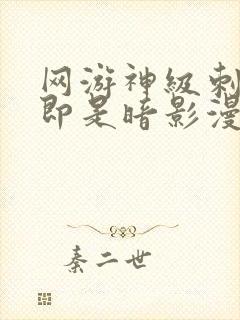 网游神级刺
即是暗影漫
秦二世